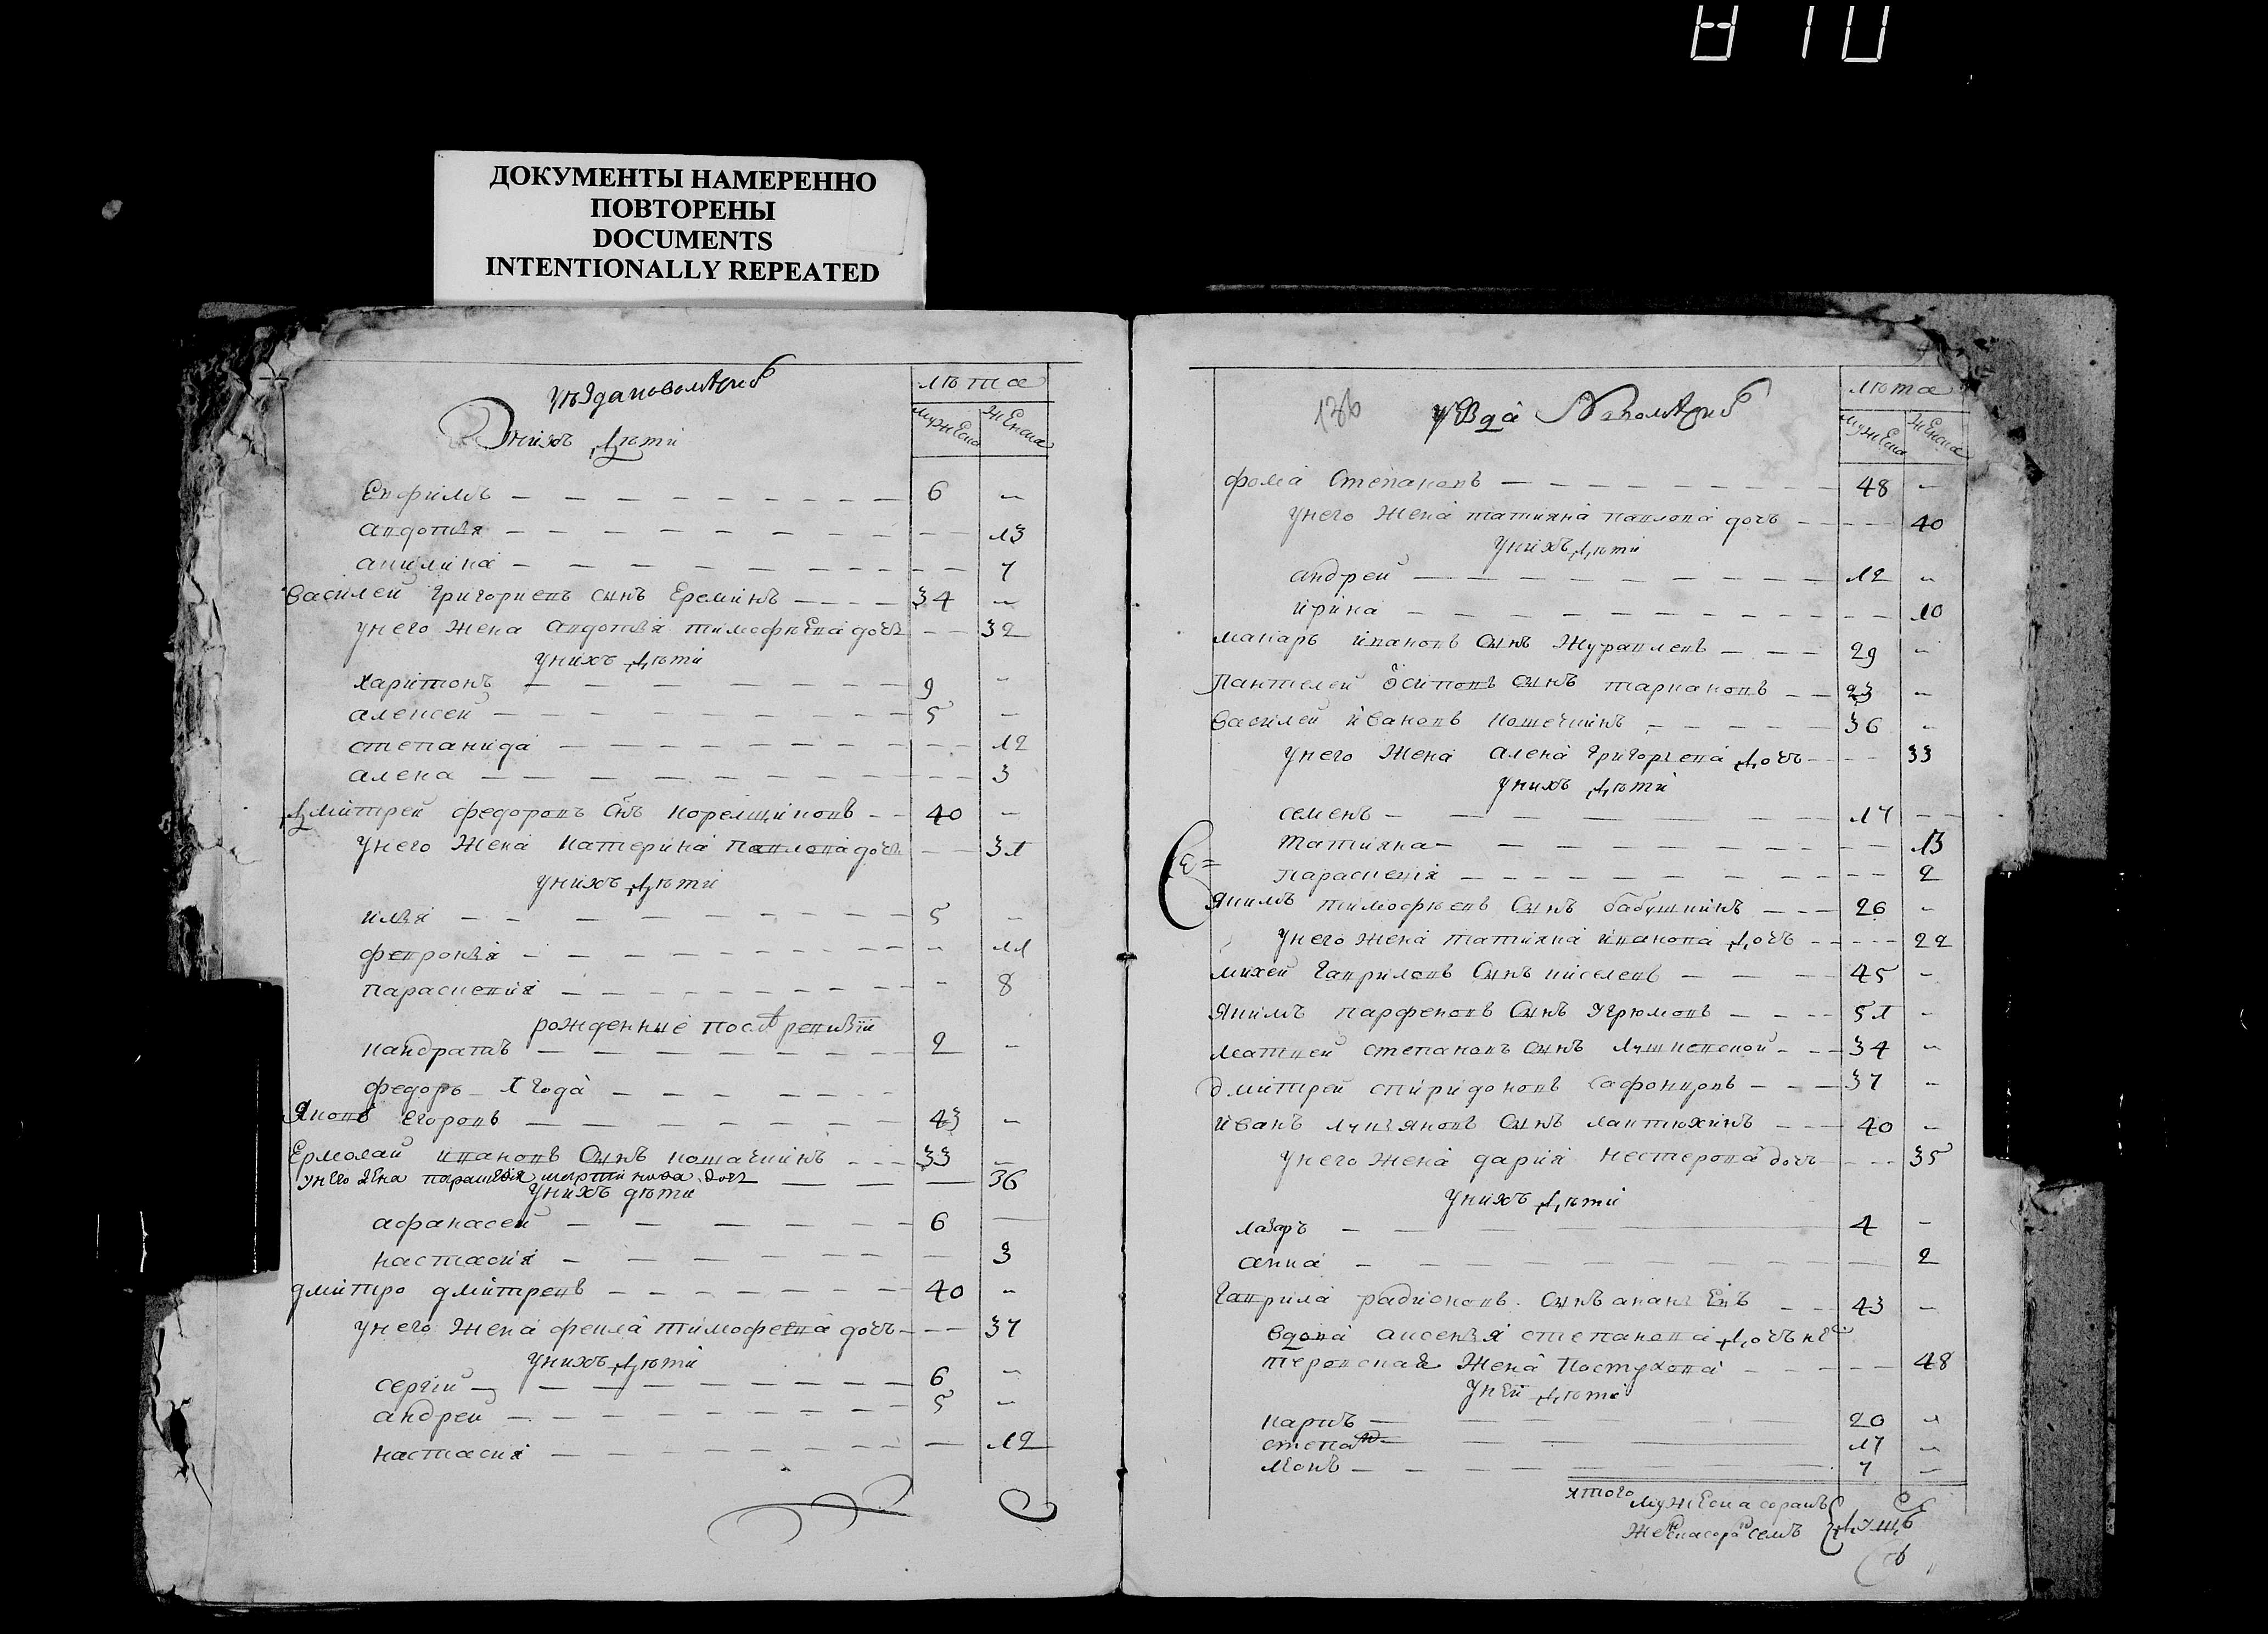 810
ДОКУМЕНТЫ НАМЕРЕННО
ПОВТОРЕНЫ
DOCUMENTS
INTENTIONALLY REPEATED
лѣта
мужеска женска
Унихъ дѣти
Евфимъ 6
авдотья 13
акилина 7
Василей Григорьевъ сынъ Ереминъ 34
унего жена авдотья тимофѣева дочь 32
унихъ дѣти
харитонъ 9
алексей 5
степанида 12
алена 3
дмитрей федоровъ снъ корелщиковъ 40
унего жена катерина павлова дочь 31
унихъ дѣти
илья 5
февронья 11
параскевия 8
рожденные после ревизїи
кандратъ 2
федоръ 1 года
Яковъ егоровъ 43
Ермолай ивановъ сынъ кошачкинъ 33
унего жена дочь 36
унихъ дѣти
афанасей 6
настасия 3
дмитро дмитревъ 40
унего жена фекла тимофеева дочь 37
унихъ дѣти
сергий 6
андрей 5
настасия 12
136
лѣта
мужеска женска
фома степановъ 48
унего жена татияна павлова дочь 40
унихъ дѣти
андрей 12
ирина 10
макаръ ивановъ сынъ журавлевъ 29
Пантелей осиповъ сынъ таракановъ 23
Василей ивановъ кошечкинъ 36
унего жена алена григорьева дочь 33
унихъ дѣти
семенъ 17
татияна 13
параскевия 2
Якимъ тимофѣевъ сынъ бабушкинъ 26
унего жена татияна иванова дочь 22
михей гавриловъ сынъ киселевъ 45
Якимъ парфеновъ сынъ угрюмовъ 51
матвей степановъ сынъ 34
дмитрей спиридоновъ сафонцовъ 37
иванъ лукьяновъ сынъ лантюхинъ 40
унего жена дария нестерова дочь 35
унихъ дѣти
лазаръ 4
анна 2
Гаврила радионовъ сынъ 43
вдова аксенья степанова дочь не
теровская жена пастухова 48
уней дѣти
карпъ 20
степанъ 17
леонъ 7
итого мужеска сорокъ
женска сорокъ семь